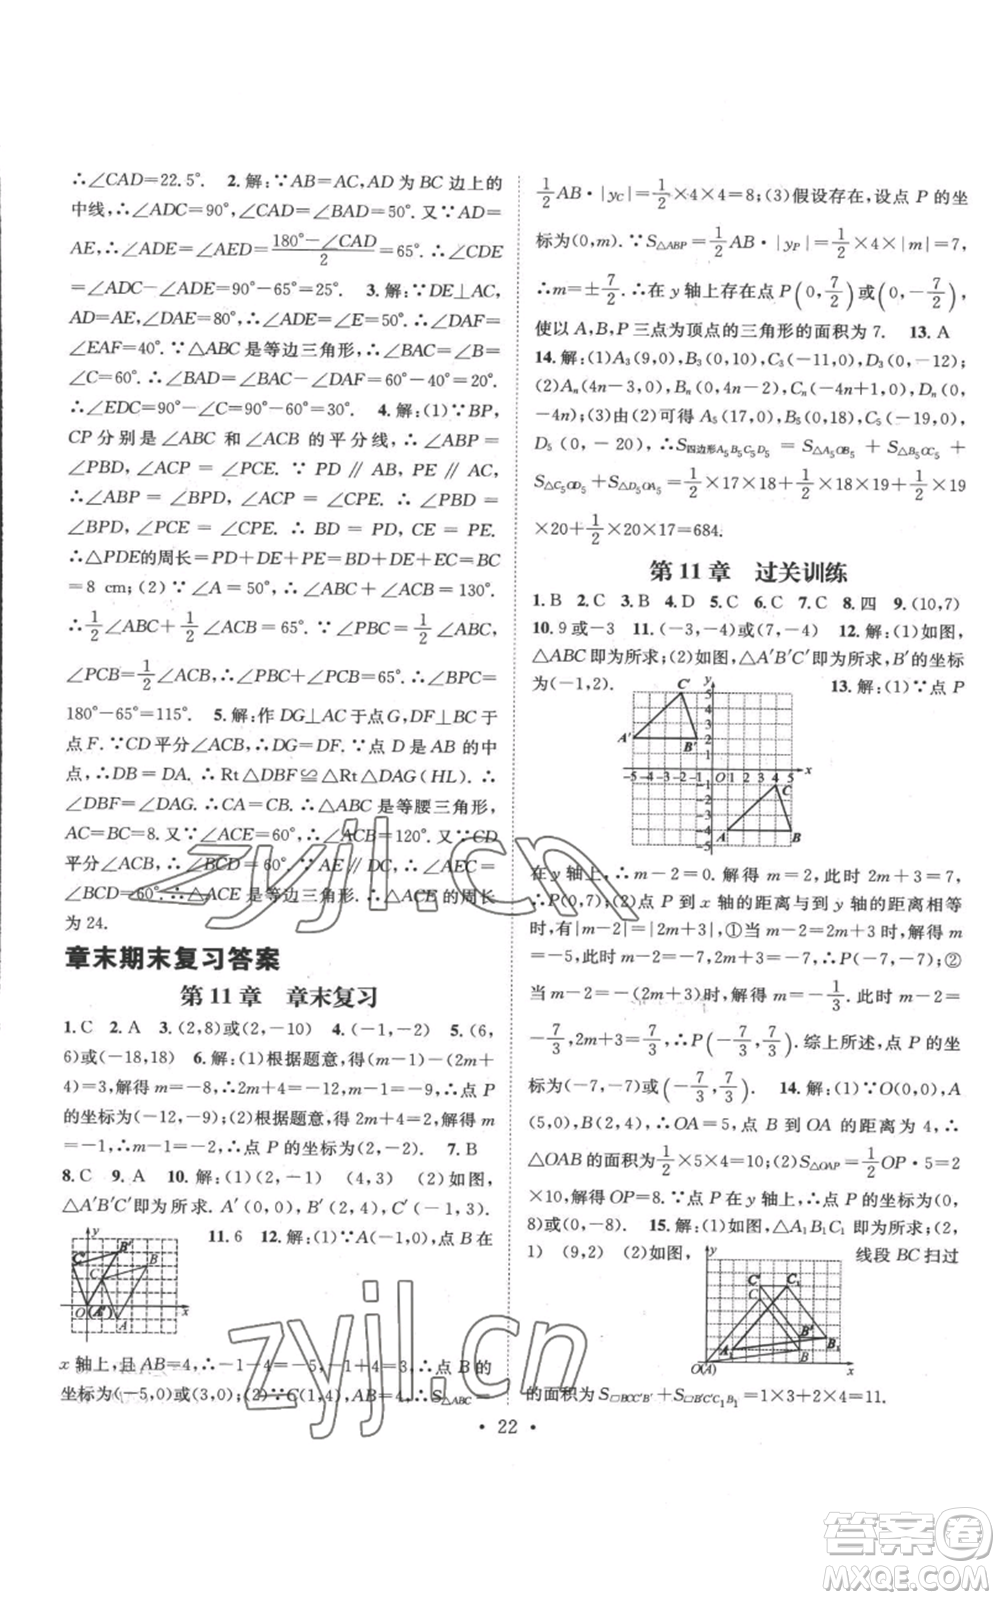 ∴∠CAD=22.5°. 2.解:∵AB=AC,AD为BC边上的
中线,∴∠ADC=90°,∠CAD=∠BAD=50°.又∵AD=
AE,∴∠ADE=∠AED=(180°-∠CAD)/2=65°.∴∠CDE
=∠ADC-∠ADE=90°-65°=25°. 3.解:∵DE⊥AC,
AD=AE,∠DAE=80°,∴∠ADE=∠E=50°.∴∠DAF=
∠EAF=40°.∵△ABC是等边三角形,∴∠BAC=
∠C=60°.∴∠BAD=∠BAC-∠DAF=60°-40°=20°.
∴∠EDC=90°-∠C=90°-60°=30°. 4.解:(1)∵BP,
CP分别是∠ABC和∠ACB的平分线,∴∠ABP=
∠PBD,∠ACP=∠PCE.∵PD∥AB,PE∥AC,
∴∠ABP=∠BPD,∠ACP=∠CPE.∴∠PBD=
∠BPD,∠PCE=∠CPE.∴BD=PD,CE=PE.
∴△PDE的周长=PD+DE+PE=BD+DE+EC=BC
=8 cm;(2)∵∠A=50°,∴∠ABC+∠ACB=130°.
∴1/2∠ABC+1/2∠ACB=65°.∵∠PBC=1/2∠ABC,
∠PCB=1/2∠ACB,∴∠PBC+∠PCB=65°,∴∠BPC=
180°-65°=115°. 5.解:作DG⊥AC于点G,DF⊥BC于
点F.∵CD平分∠ACB,∴DG=DF.∵点D是AB的中
点,∴DB=DA.∴Rt△DBF≌Rt△DAG(HL).
∴∠DBF=∠DAG.∴CA=CB=△ABC是等腰三角形,
AC=BC=8.又∵∠ACE=60°,∴∠ACB=120°.又∵CD
平分∠ACB,∴∠BCD=60°.∵AE∥DC,∴∠AEC=
∠BCD=60°.∴△ACE是等边三角形.∴△ACE的周长
为24.
章末期末复习答案
第11章 章末复习
1.C 2.A 3.(2,8)或(2,-10) 4.(-1,-2) 5.(6,
6)或(-18,18) 6.解:(1)根据题意,得(m-1)-(2m+
4)=3,解得m=-8,∴2m+4=-12,m-1=-9,∴点P
的坐标为(-12,-9);(2)根据题意,得2m+4=2,解得m
=-1,∴m-1=-2,∴点P的坐标为(2,-2). 7.B
8.C 9.A 10.解:(1)(2,-1) (4,3) (2)如图,
△A′B′C′即为所求.A′(0,0),B′(2,4),C′(-1,3).
11.6 12.解:(1)∵A(-1,0),点B在
y C′ B′ B C O(A′) A x
x轴上,且AB=4,∴-1-4=-5,-1+4=3.∴点B的
坐标为(-5,0)或(3,0);(2)∵C(1,4),AB=4,∴S△ABC=
1/2AB·|yC|=1/2×4×4=8;(3)假设存在,设点P的坐
标为(0,m).∵S△ABP=1/2AB·|yP|=1/2×4×|m|=7,
∴m=±7/2.∴在y轴上存在点P(0,7/2)或(0,-7/2),
使以A,B,P三点为顶点的三角形的面积为7. 13.A
14.解:(1)A3(9,0),B3(0,10),C3(-11,0),D3(0,-12);
(2)An(4n-3,0),Bn(0,4n-2),Cn(-4n+1,0),Dn(0,
-4n);(3)由(2)可得A5(17,0),B5(0,18),C5(-19,0),
D5(0,-20),∴S四边形A5B5C5D5=S△A5OB5+S△B5OC5+
S△C5OD5+S△D5OA5=1/2×17×18+1/2×18×19+1/2×19
×20+1/2×20×17=684.
第11章 过关训练
1.B 2.C 3.B 4.D 5.C 6.C 7.C 8.四 9.(10,7)
10.9或-3 11.(-3,-4)或(7,-4) 12.解:(1)如图,
△ABC即为所求;(2)如图,△A′B′C′即为所求,B′的坐标
为(-1,2). 13.解:(1)∵点P
y C′ 5 4 3 2 1 A′ B′ -5 -4 -3 -2 -1 O 1 2 3 4 5 x -1 -2 -3 -4 -5 C A B
在y轴上,∴m-2=0.解得m=2,此时2m+3=7,
∴P(0,7);(2)点P到x轴的距离与到y轴的距离相等
时,有|m-2|=|2m+3|,①当m-2=2m+3时,解得m
=-5,此时m-2=-7,2m+3=-7,∴P(-7,-7);②
当m-2=-(2m+3)时,解得m=-1/3,此时m-2=
-7/3,2m+3=7/3,∴P(-7/3,7/3).综上所述,点P的坐
标为(-7,-7)或(-7/3,7/3). 14.解:(1)∵O(0,0),A
(5,0),B(2,4),∴OA=5,点B到OA的距离为4,∴
△OAB的面积为1/2×5×4=10;(2)S△OAP=1/2OP·5=2
×10,解得OP=8.∵点P在y轴上,∴点P的坐标为(0,
8)或(0,-8). 15.解:(1)如图,△A1B1C1即为所求;(2,
1) (9,2) (2)如图, 线段BC扫过
y C′ C1 C B′ B1 A1 B O(A) x
的面积为S□BCC′B′+S□B′C′C1B1=1×3+2×4=11.
· 22 ·
zyjl.cn
zyjl.cn
答案圈
MXQE.COM